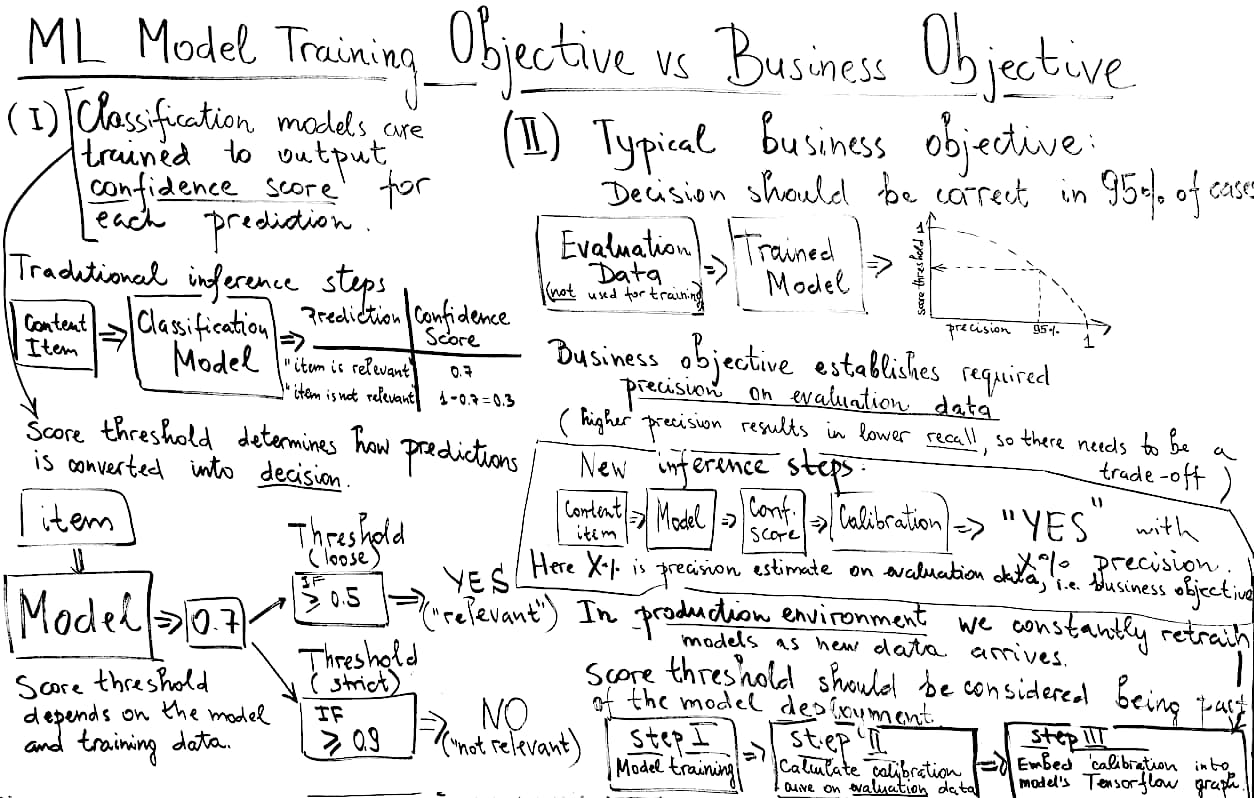 ML Model Training Objective vs Business Objective
(I) Classification models are
trained to output
confidence score for
each prediction.
Traditional inference steps
Content
Item
=>
Classification
Model
=>
Prediction
Confidence
Score
"item is relevant"
0.7
"item is not relevant"
1-0.7=0.3
Score threshold determines how predictions
is converted into decision.
item
Model => 0.7
Threshold
(loose)
IF
≥ 0.5
=>
YES
("relevant")
Threshold
(strict)
IF
≥ 0.9
=>
NO
("not relevant")
Score threshold
depends on the model
and training data.
(II) Typical business objective:
Decision should be correct in 95% of cases
Evaluation
Data
(not used for training)
=>
Trained
Model
=>
score threshold 1
precision 95% 1
Business objective establishes required
precision on evaluation data
(higher precision results in lower recall, so there needs to be a
trade-off)
New inference steps:
Content
item
=>
Model
=>
Conf.
score
=>
Calibration
=>
"YES" with
X% precision.
Here X% is precision estimate on evaluation data, i.e. business objective
In production environment we constantly retrain
models as new data arrives.
Score threshold should be considered being part
of the model deployment.
Step I
Model training
=>
Step II
Calculate calibration
curve on evaluation data
=>
Step III
Embed calibration into
model's Tensorflow graph.